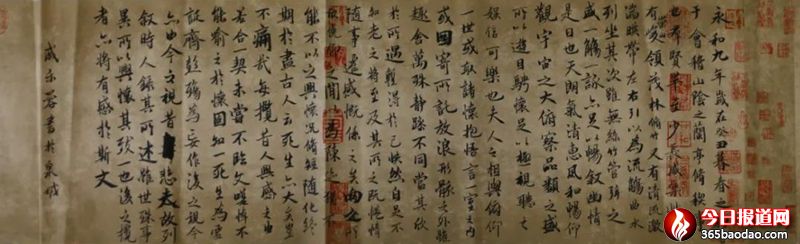 永和九年歲在癸丑暮春之
于會稽山陰之蘭亭脩稧
也羣賢畢至少長咸集此
有領茂林脩竹又有清流激
湍暎帶左右引以為流觴曲水
列坐其次雖無絲竹管弦之
盛一觴一詠亦足以暢敘幽情
是日也天朗氣清惠風和暢仰
觀宇宙之大俯察品類之盛
所以遊目騁懷足以極視聽之
娛信可樂也夫人之相與俯仰
一世或取諸懷抱悟言一室之內
或因寄所託放浪形骸之外雖
趣舍萬殊靜躁不同當其欣
於所遇暫得於己怏然自足不
知老之將至及其所之既惓情
隨事遷感慨係之矣向之所
俛仰之間以為陳迹猶不
能不以之興懷況脩短隨化終
期於盡古人云死生亦大矣豈
不痛哉每攬昔人興感之由
若合一契未嘗不臨文嗟悼不
能喻之於懷固知一死生為虛
誕齊彭殤為妄作後之視今
亦由今之視昔悲夫故列
敘時人錄其所述雖世殊事
異所以興懷其致一也後之攬
者亦將有感於斯文
書於泉城
今日报道网
365baodao.com